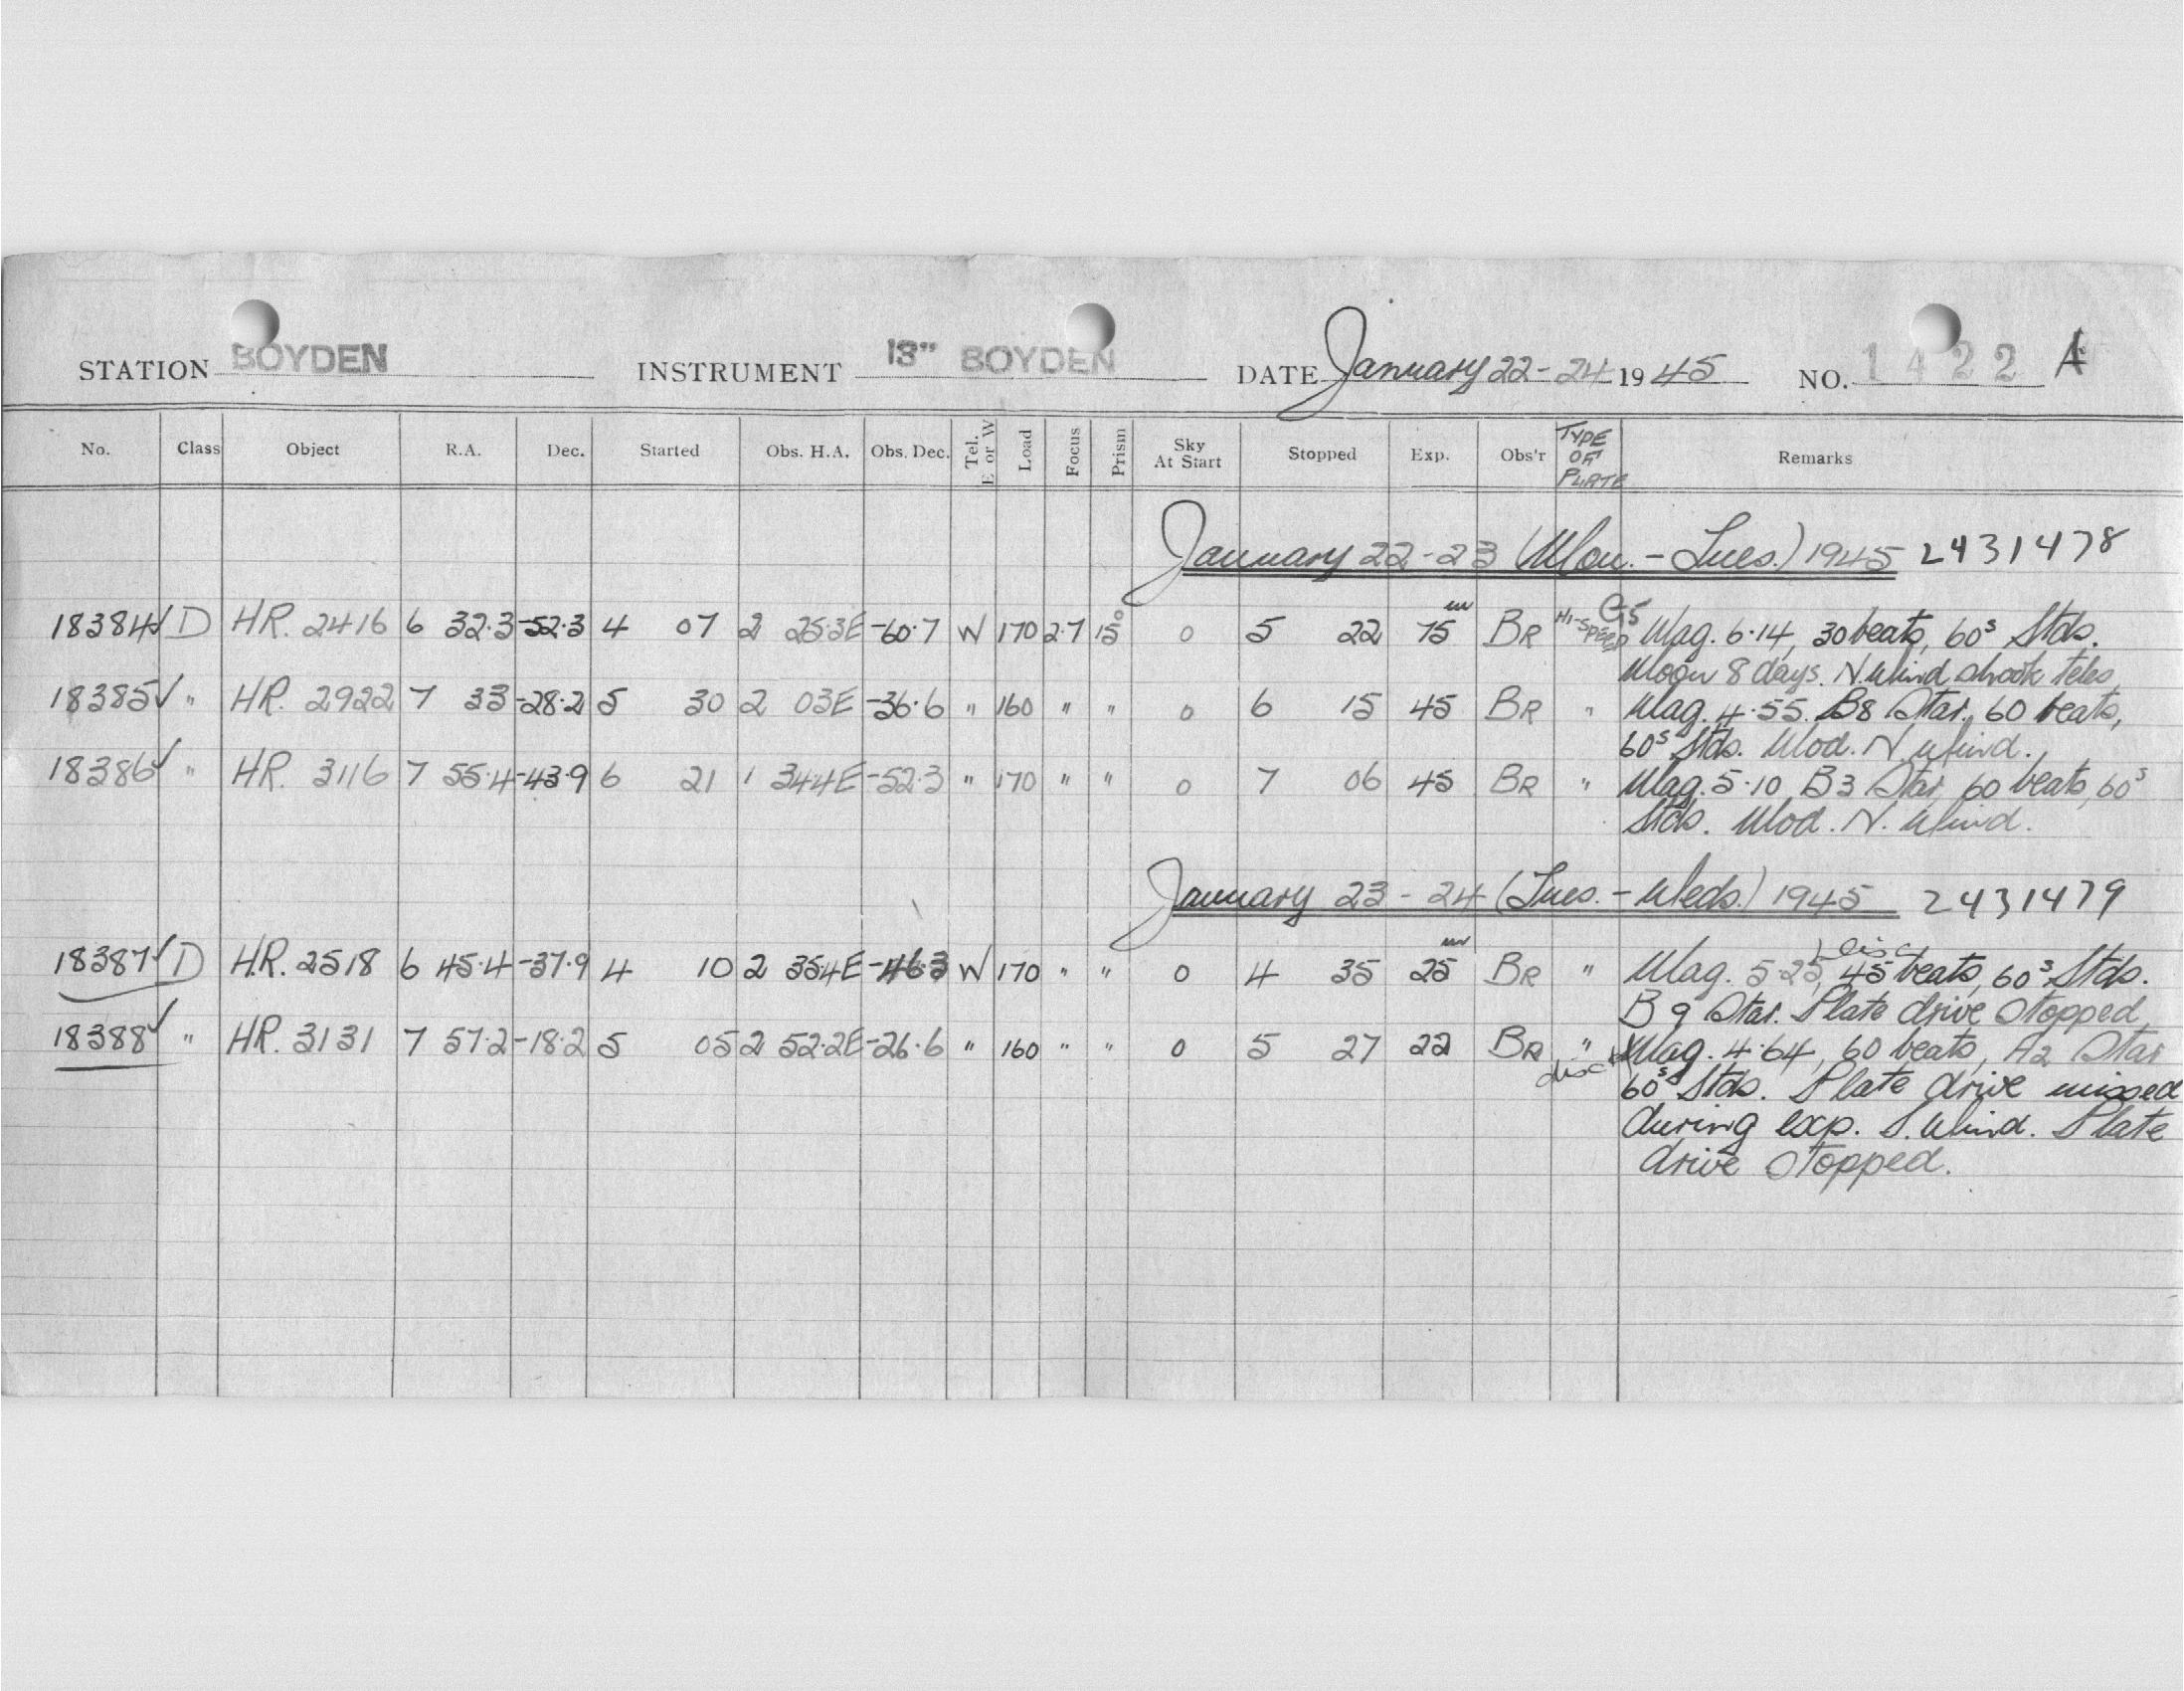 STATION BOYDEN INSTRUMENT 13" BOYDEN DATE January 22-24 1945 NO. 1422 A
No. Class Object R.A. Dec. Started Obs. H.A. Obs. Dec. Tel. E or W Load Focus Prism Sky At Start Stopped Exp. Obs'r TYPE OF PLATE Remarks
January 22-23 (Mon.-Tues.) 1945 2431478
18384✓ D HR. 2416 6 32.3 -52.3 4 07 2 25.3E -60.7 W 170 2.7 15° 0 5 22 75m BR HI-SPEED G5 Mag. 6.14, 30 beats, 60s Stds.
Moon 8 days. N. Wind shook teles.
18385✓ " HR. 2922 7 33 -28.2 5 30 2 03E -36.6 " 160 " " 0 6 15 45 BR " Mag. 4.55. B8 Star, 60 beats,
60s Stds. Mod. N. Wind.
18386✓ " HR. 3116 7 55.4 -43.9 6 21 1 34.4E -52.3 " 170 " " 0 7 06 45 BR " Mag. 5.10 B3 Star, 60 beats, 60s
Stds. Mod. N. Wind.
January 23-24 (Tues.-Weds.) 1945 2431479
18387✓ D HR. 2518 6 45.4 -37.9 4 10 2 35.4E -46.3 W 170 " " 0 4 35 25m BR " Mag. 5.25, 45 beats, 60s Stds.
B9 Star. Plate drive stopped
18388✓ " HR. 3131 7 57.2 -18.2 5 05 2 52.2E -26.6 " 160 " " 0 5 27 22 BR " disc Mag. 4.64, 60 beats, A2 Star
60s Stds. Plate drive missed
during exp. S. Wind. Plate
drive stopped.